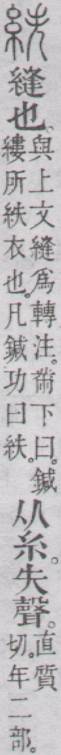 紩
縫也。
與上文縫爲轉注。黹下曰。鍼
縷所紩衣也。凡鍼功曰紩。
从糸。失聲。
直質
切。十二部。